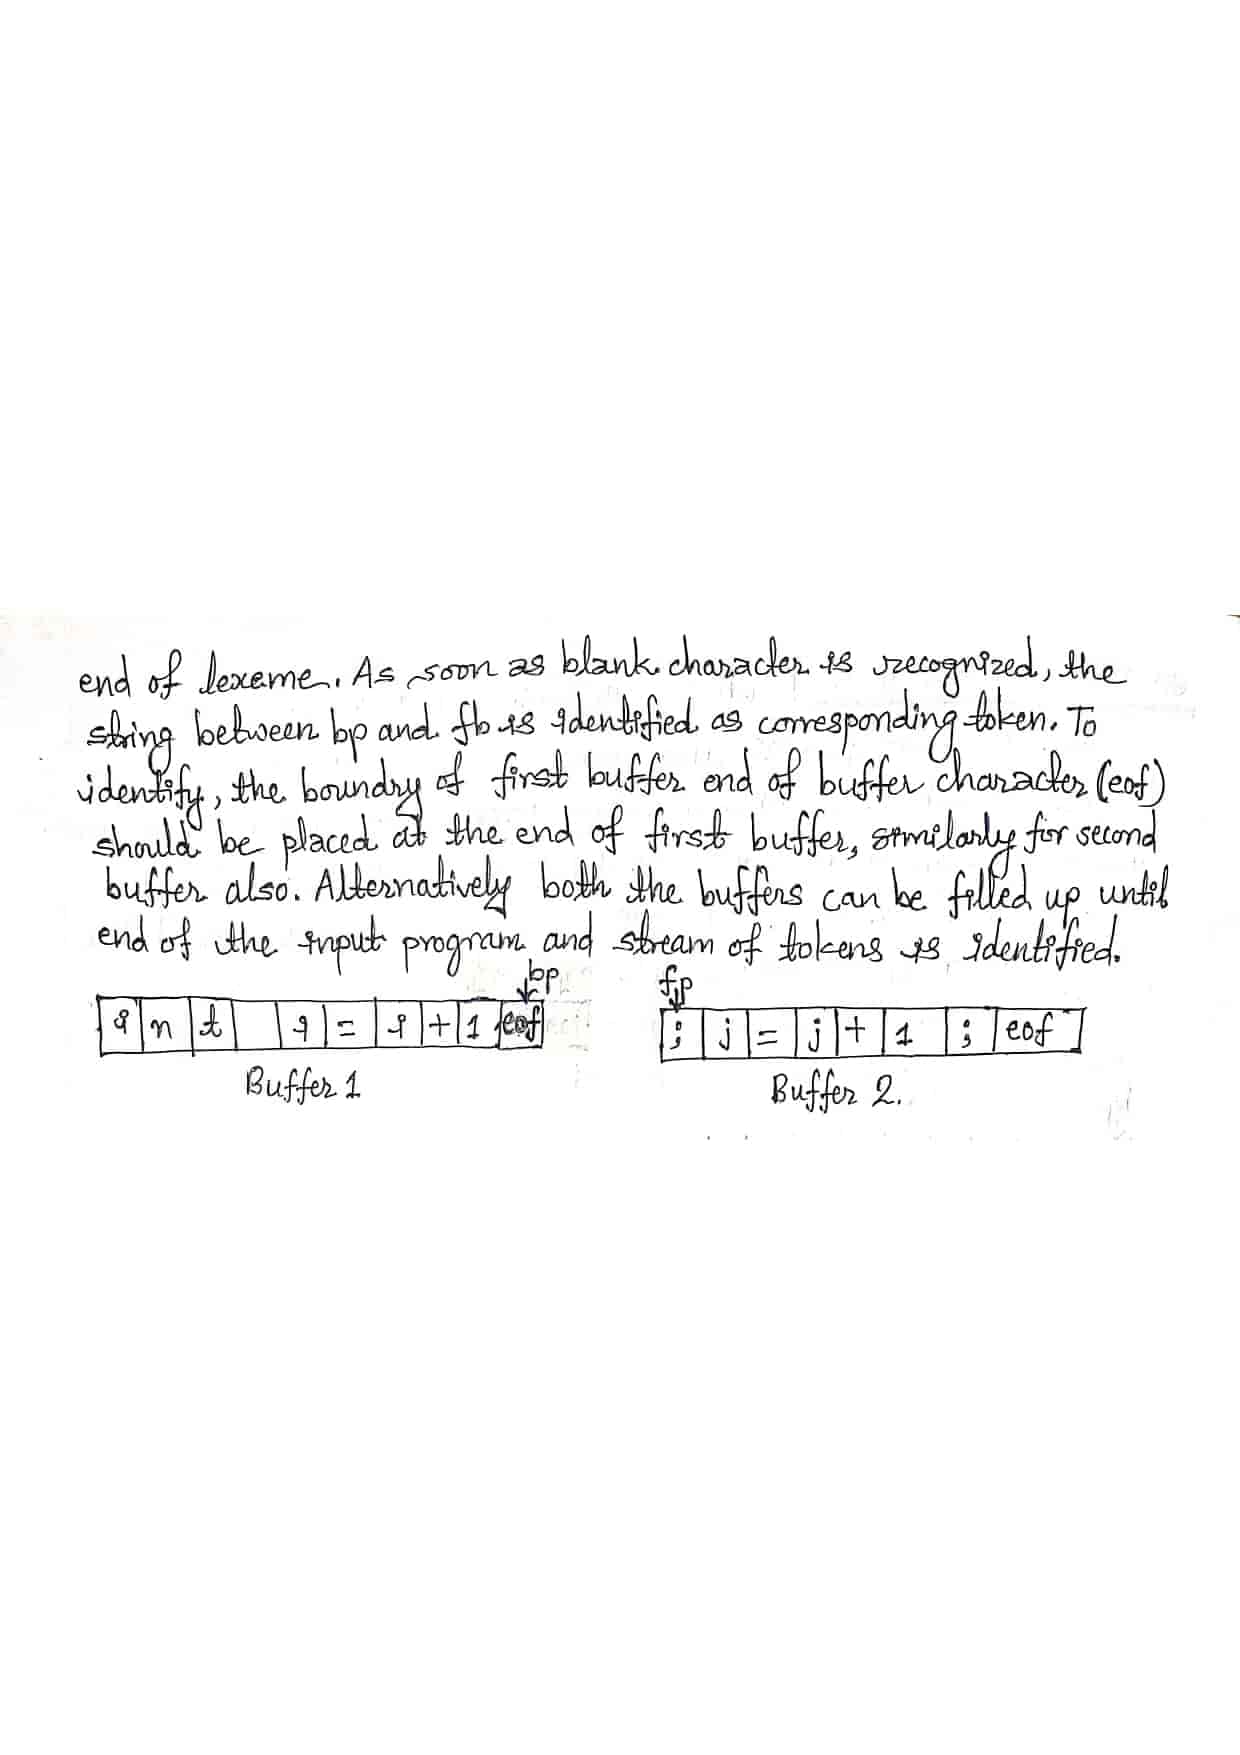 end of lexeme. As soon as blank character is recognized, the
string between bp and fb is identified as corresponding token. To
identify, the boundry of first buffer end of buffer character (eof)
should be placed at the end of first buffer, similarly for second
buffer also. Alternatively both the buffers can be filled up until
end of the input program and stream of tokens is identified.
bp fp
i n t i = i + 1 eof ; j = j + 1 ; eof
Buffer 1 Buffer 2.